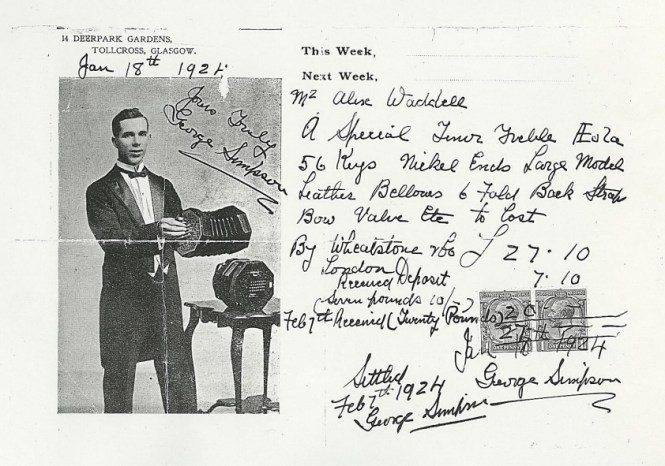 14 DEERPARK GARDENS,
TOLLCROSS, GLASGOW.
Jan 18th 1924.
Yours Truly
George Simpson
This Week,
Next Week,
Mr Alex Waddell
A Special Tenor Treble Æola
56 Keys Nickel Ends Large Model
Leather Bellows 6 Fold Back Strap
Bow Valve Etc to Cost
By Wheatstone & Co £ 27.10
London
Received Deposit 7.10
(Seven pounds 10/-)
Feb 7th Received (Twenty Pounds) 20
Jan 1924
George Simpson
Settled
Feb 7th 1924
George Simpson